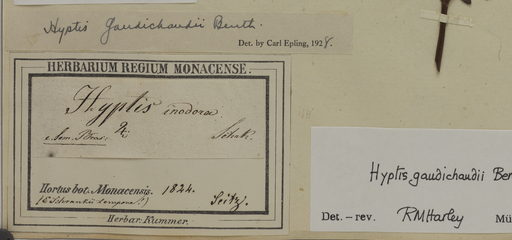 Hyptis gaudichaudii Benth.
Det. by Carl Epling, 1928.
HERBARIUM REGIUM MONACENSE.
Hyptis inodora
e. Sem. Bras: Schrk.
Hortus bot. Monacensis. 1824.
(e Schrankii tempore!) Seitz.
Herbar. Kummer.
Hyptis gaudichaudii Ben
Det. – rev. RM Harley Mü